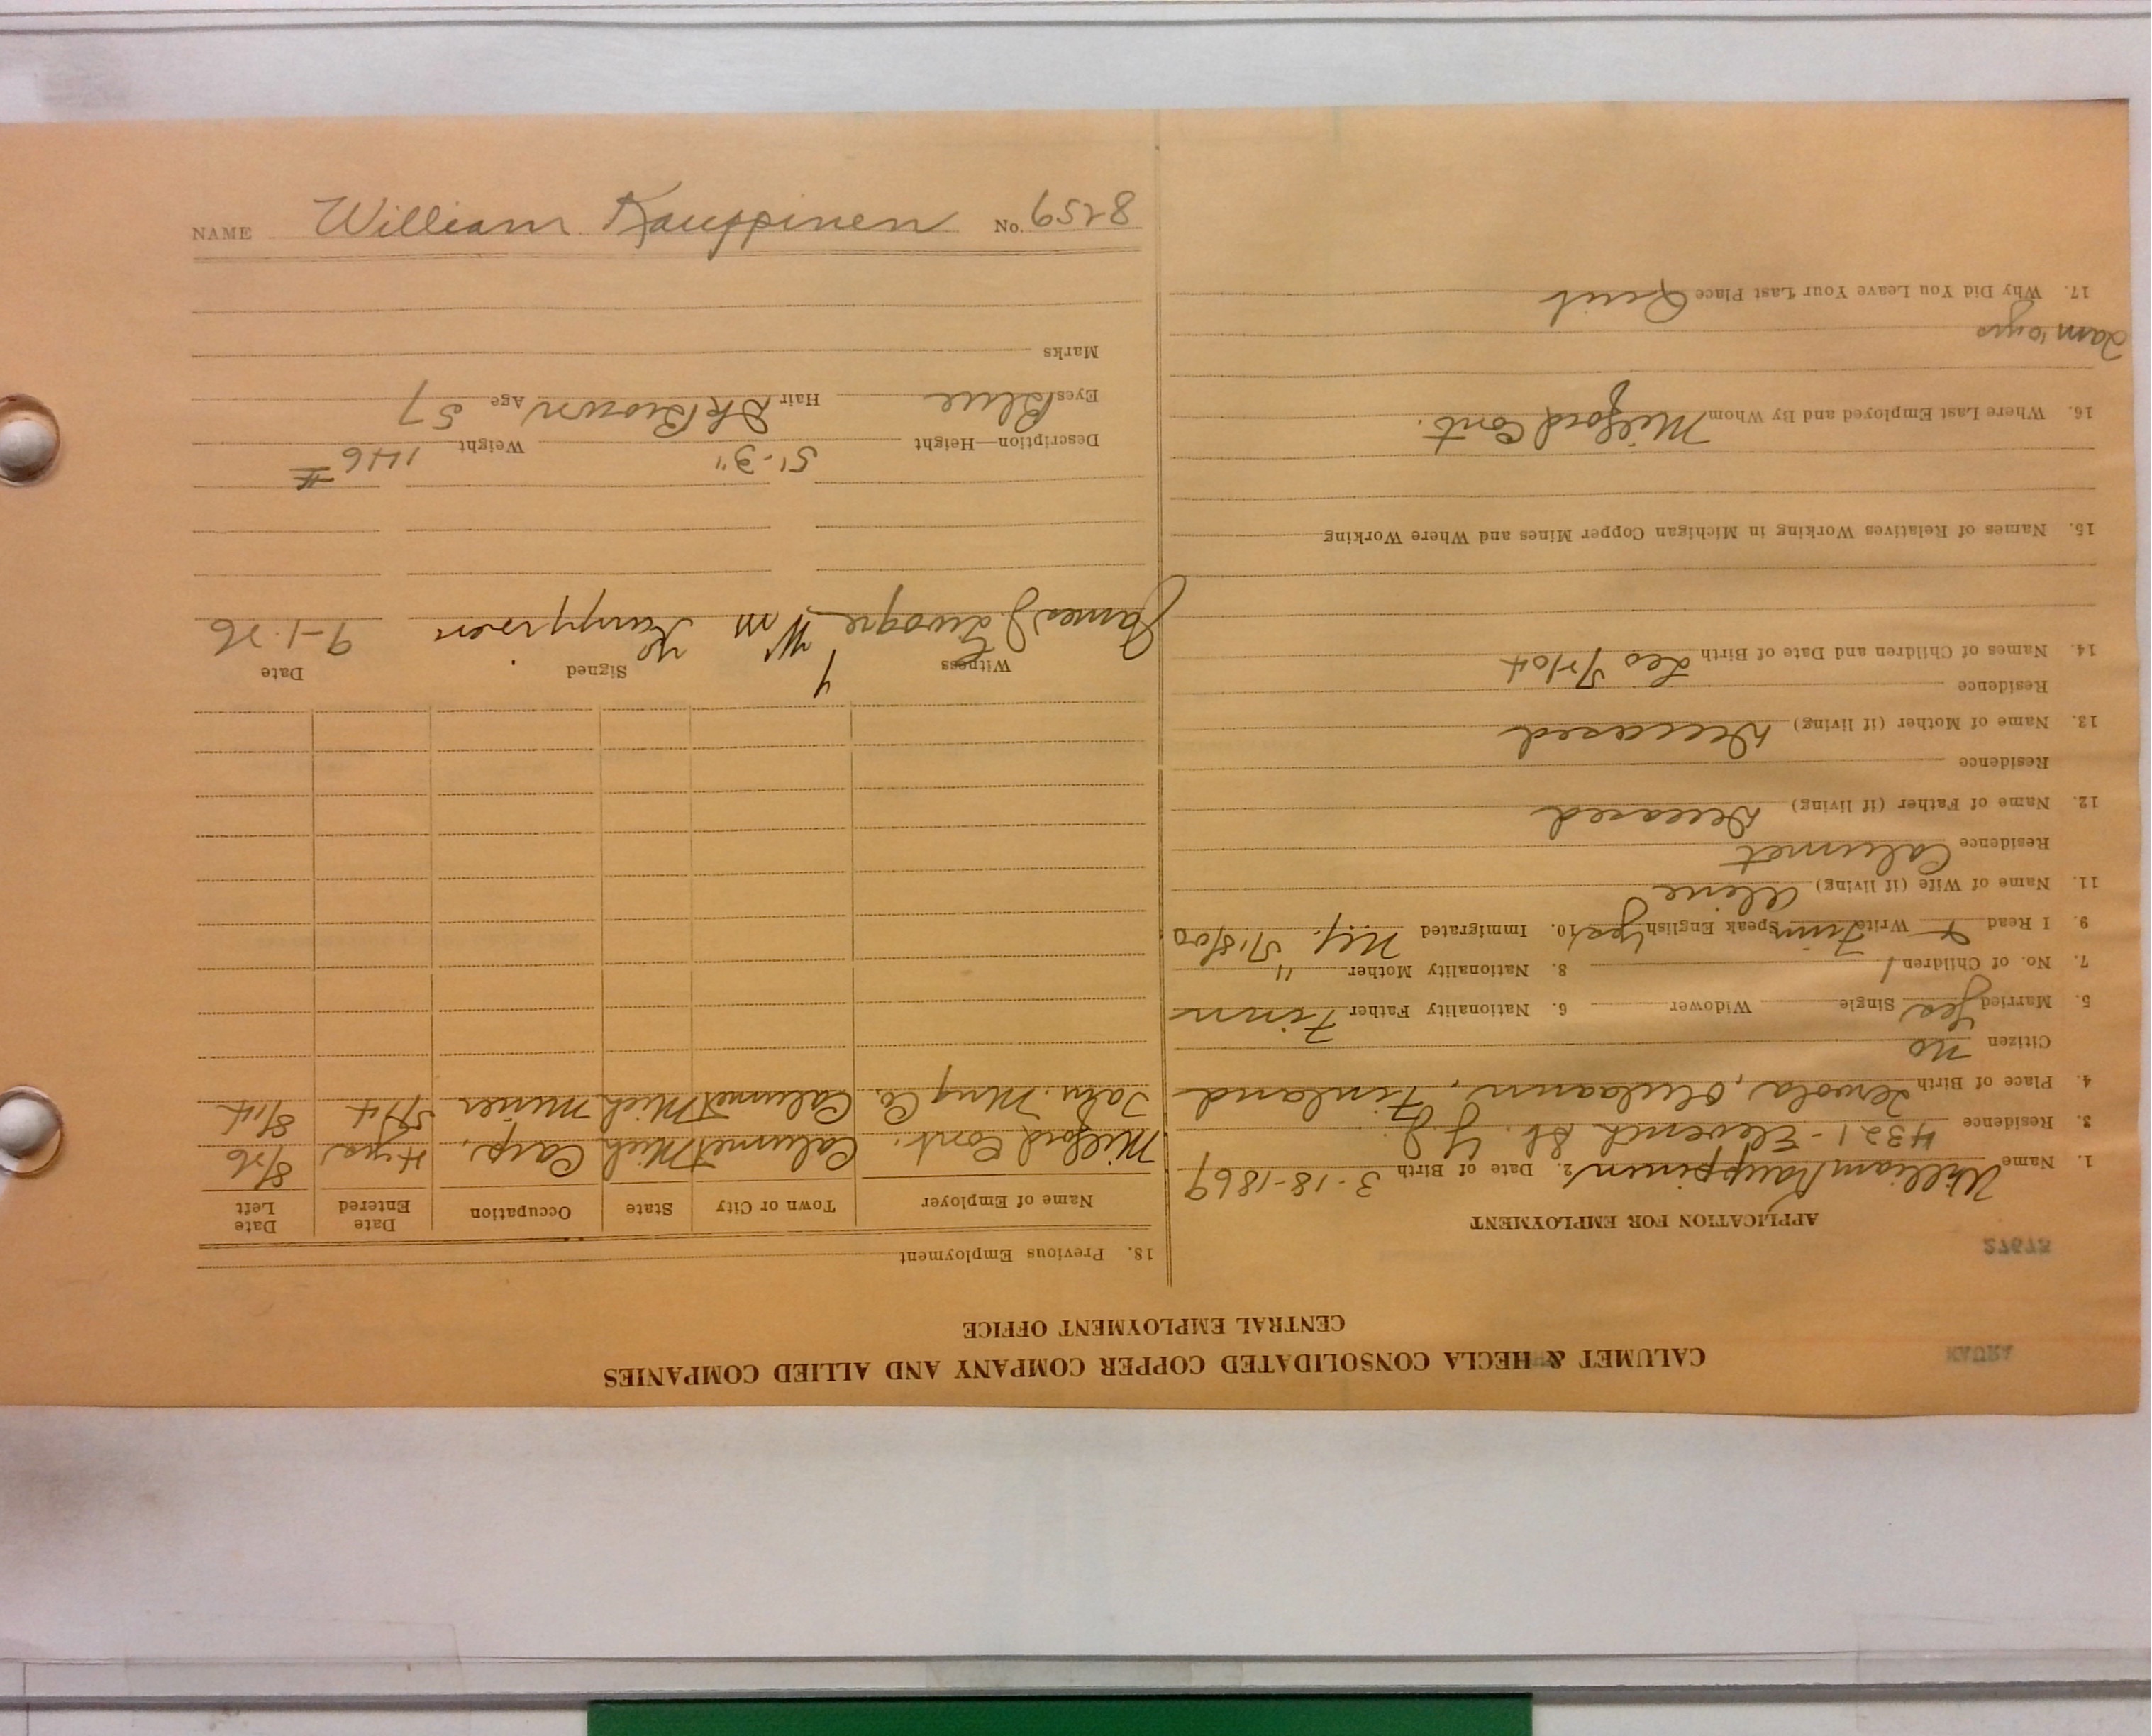 CALUMET & HECLA CONSOLIDATED COPPER COMPANY AND ALLIED COMPANIES
CENTRAL EMPLOYMENT OFFICE
APPLICATION FOR EMPLOYMENT
1. Name William Kauppinen 2. Date of Birth 3-18-1869
3. Residence 4321-Eleventh St. Y.J.
4. Place of Birth Tervola, Oulaann, Finland
Citizen no
5. Married Yes Single Widower 6. Nationality Father Finn
7. No. of Children 1 8. Nationality Mother "
9. I Read & Write Finn Speak English Yes 10. Immigrated N.Y. 5/18/00
11. Name of Wife (if living) Aline
Residence Calumet
12. Name of Father (if living) Deceased
Residence
13. Name of Mother (if living) Deceased
Residence
14. Names of Children and Date of Birth Leo
15. Names of Relatives Working in Michigan Copper Mines and Where Working
16. Where Last Employed and By Whom Milford Cont.
17. Why Did You Leave Your Last Place Quit
18. Previous Employment
Name of Employer Town or City State Occupation Date Entered Date Left
Milford Cont. Calumet Mich Carp. 4 yrs 8/26
Tam. Mng Co. Calumet Mich Miner 8/14
Witness Signed Date
James J. Wm Kauppinen 9-1-26
Description—Height 5'-3" Weight 146 #
Eyes Blue Hair Dk Brown Age 57
Marks
NAME William Kauppinen No. 8259